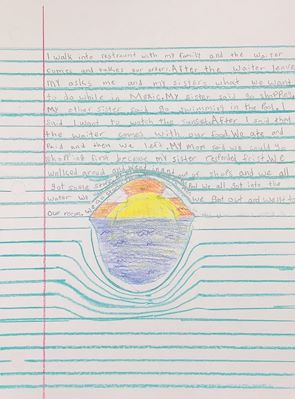 I walk into restraunt with my family and the waiter
comes and takes our orders. After the waiter leave
my asks me and my sisters what we want
to do while in Mexico. My sister said go shopping
My other sister said go swimming in the Pool. I
said I want to watch the sunset. After I said that
the waiter comes with our food. We ate and
Paid and then we left. My Mom said we could go
shopping first because my sister responded first. We
walked around and went of shops and we all
got some Pool. We all got into the
water we Got out and went to
Our rooms